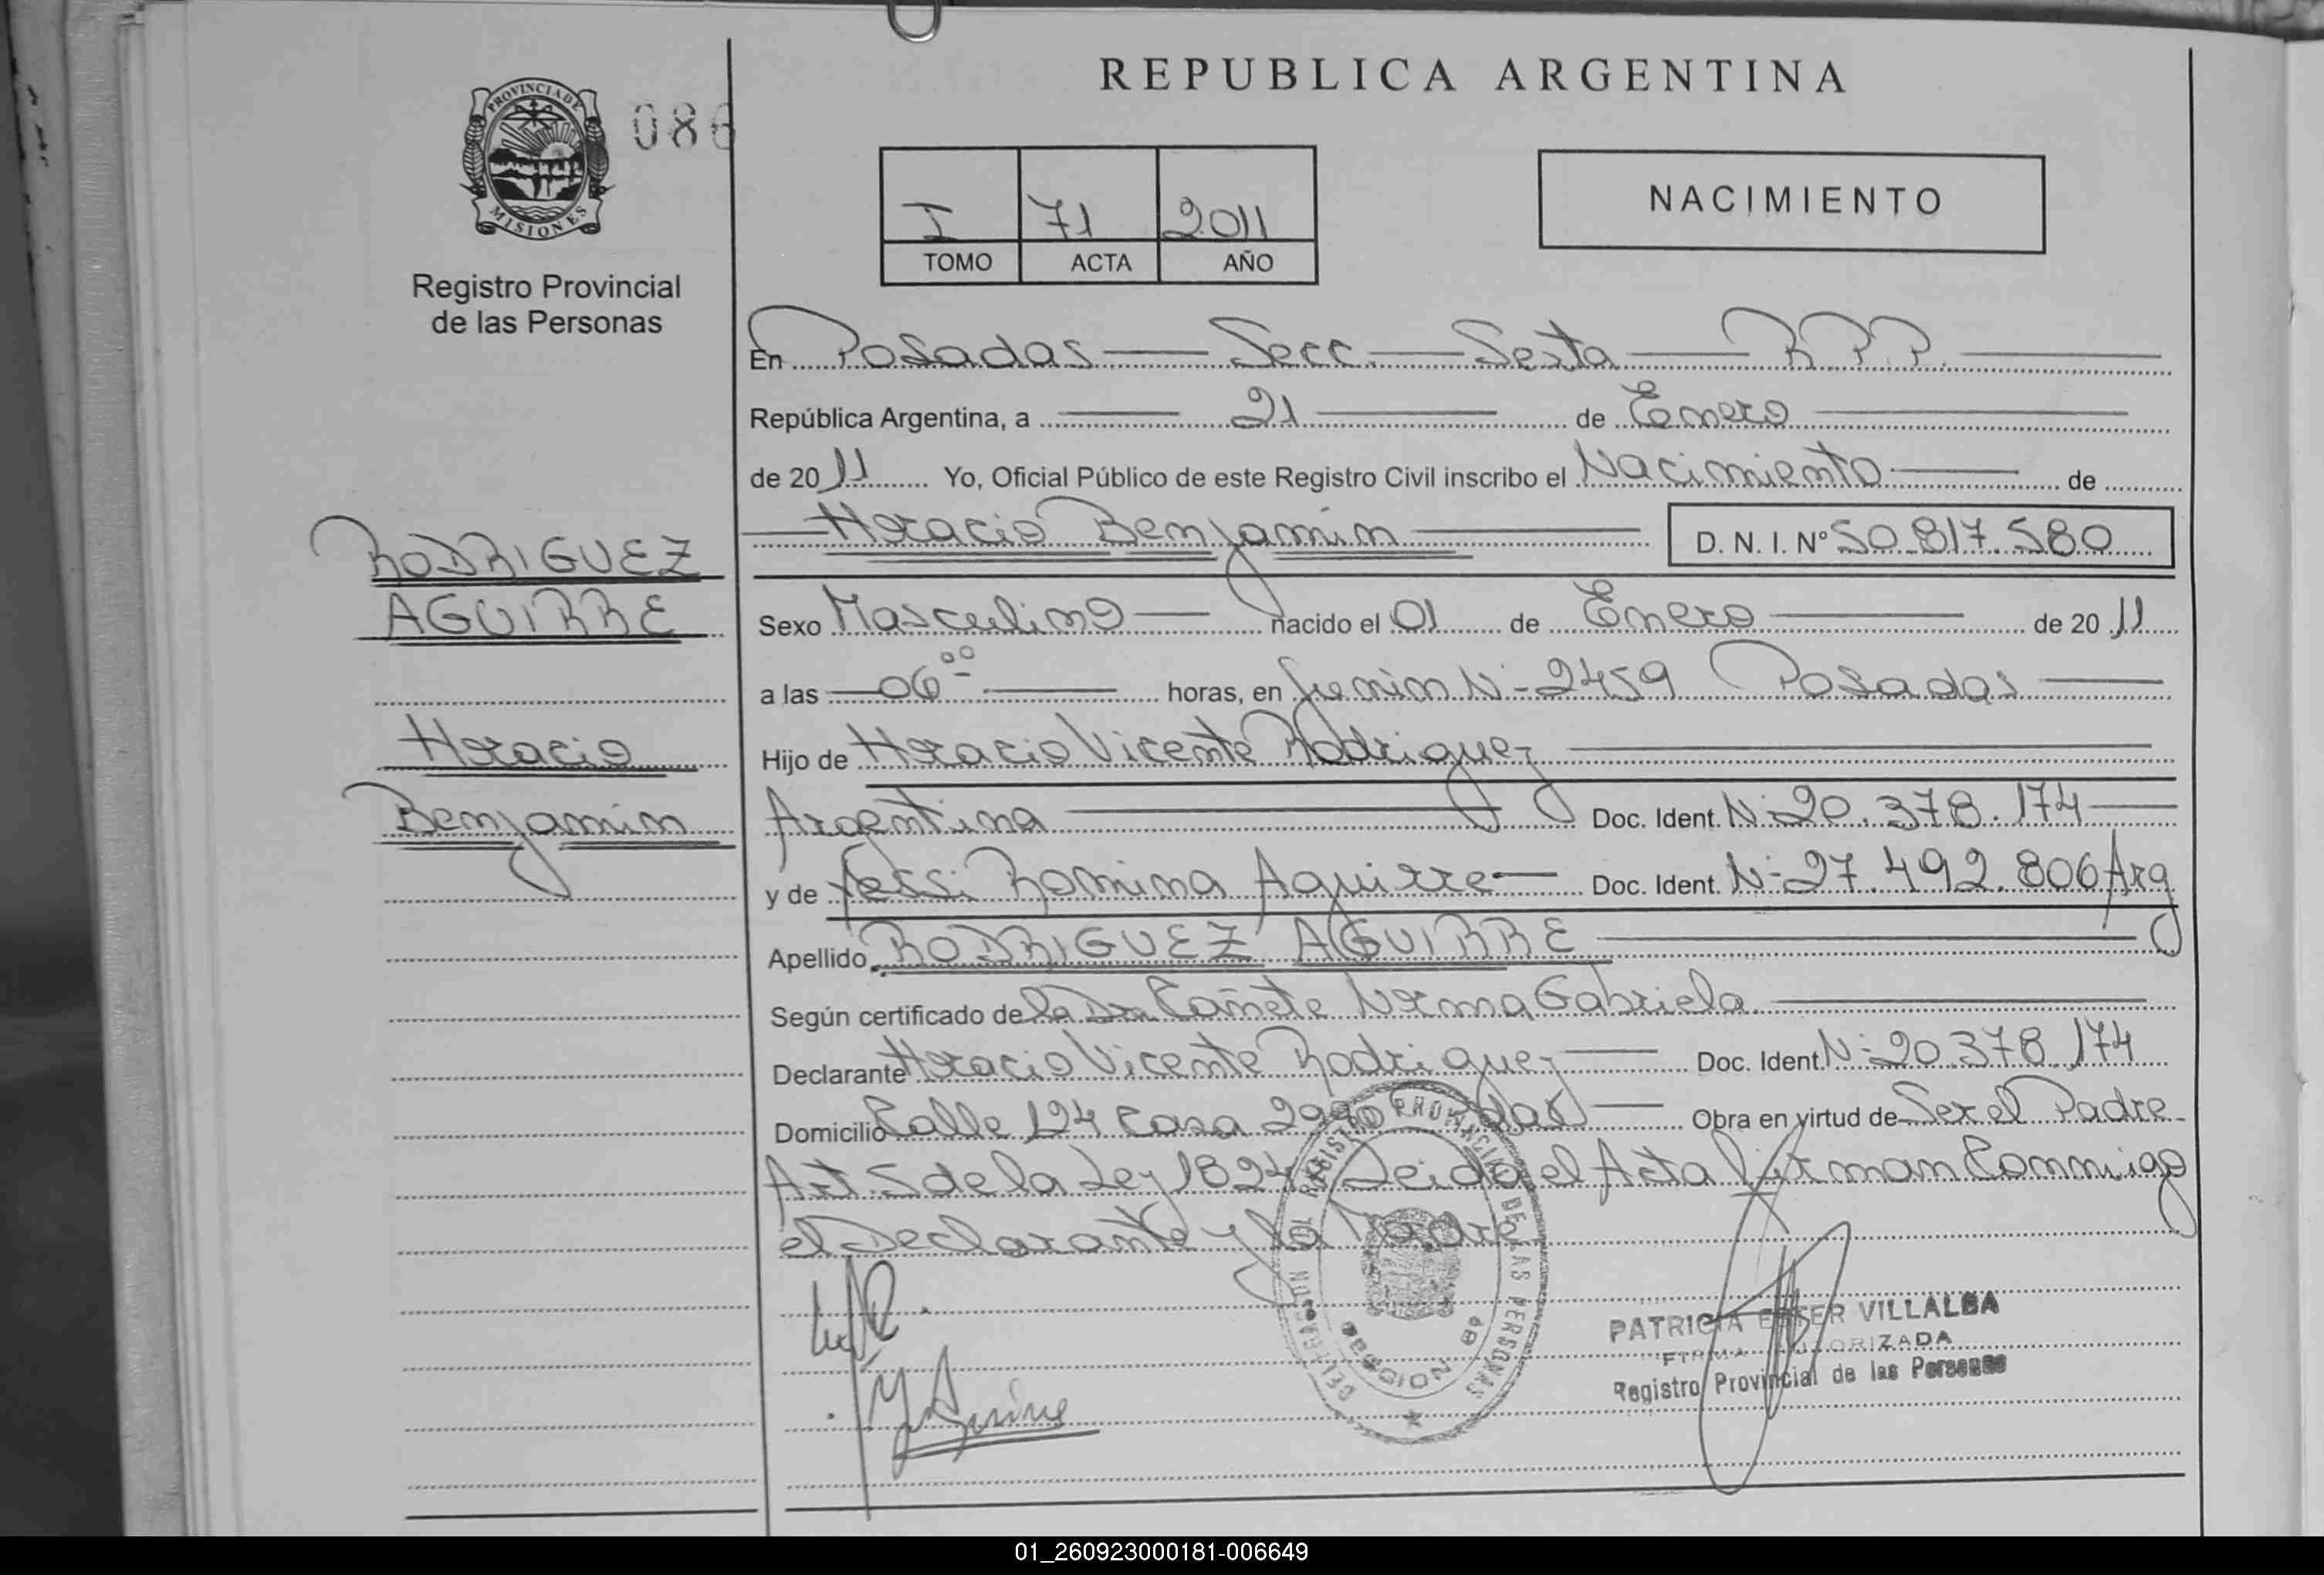 REPUBLICA ARGENTINA
PROVINCIA DE
MISIONES
086
Registro Provincial
de las Personas
I 71 2011
TOMO ACTA AÑO
NACIMIENTO
En Posadas Secc. Sexta R.P.P.
República Argentina, a 21 de Enero
de 2011 Yo, Oficial Público de este Registro Civil inscribo el Nacimiento de
Horacio Benjamin D. N. I. Nº 50.817.580
RODRIGUEZ
AGUIRRE
Horacio
Benjamin
Sexo Masculino nacido el 01 de Enero de 2011
a las 06 00 horas, en Junin N- 2459 Posadas
Hijo de Horacio Vicente Rodriguez
Argentina Doc. Ident. N- 20.378.174
y de Romina Aguirre Doc. Ident. N- 27.492.806 Arg
Apellido RODRIGUEZ AGUIRRE
Según certificado de la Dra Cañete Norma Gabriela
Declarante Horacio Vicente Rodriguez Doc. Ident. N- 20.378.174
Domicilio Calle 124 Casa Obra en virtud de Ser el Padre
Art. 5 de la Ley Leida el Acta Firman Conmigo
el Declarante y la Madre
REGISTRO PROVINCIAL DE LAS PERSONAS
PATRICIA ESTER VILLALBA
FIRMA AUTORIZADA
Registro Provincial de las Personas
01_260923000181-006649